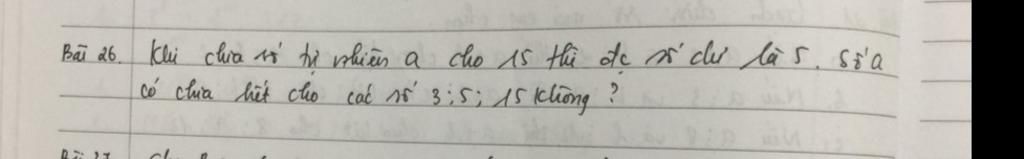 Bài 26. Khi chia số tự nhiên a cho 15 thì đc số dư là 5. Số a
có chia hết cho các số 3; 5; 15 không?
Bài 27